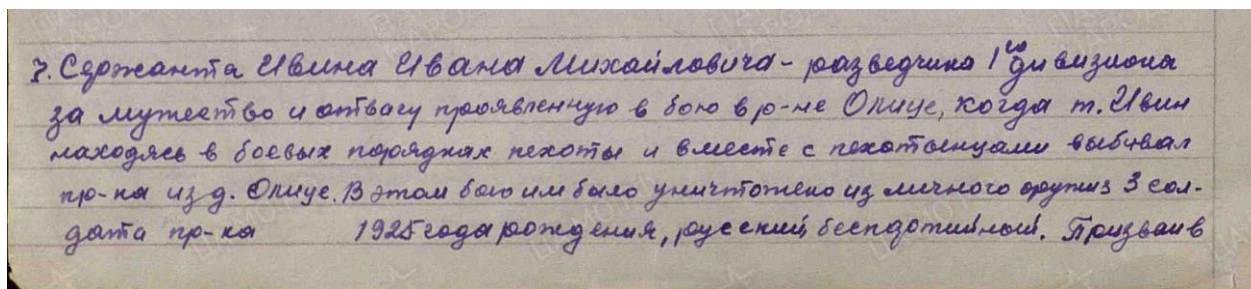 7. Сержанта Ивина Ивана Михайловича - разведчика 1го дивизиона
за мужество и отвагу проявленную в бою в р-не Опице, когда т. Ивин
находясь в боевых порядках пехоты и вместе с пехотинцами выбивал
пр-ка из д. Опице. В этом бою им было уничтожено из личного оружия 3 сол-
дата пр-ка 1925 года рождения, русский, беспартийный. Призван в